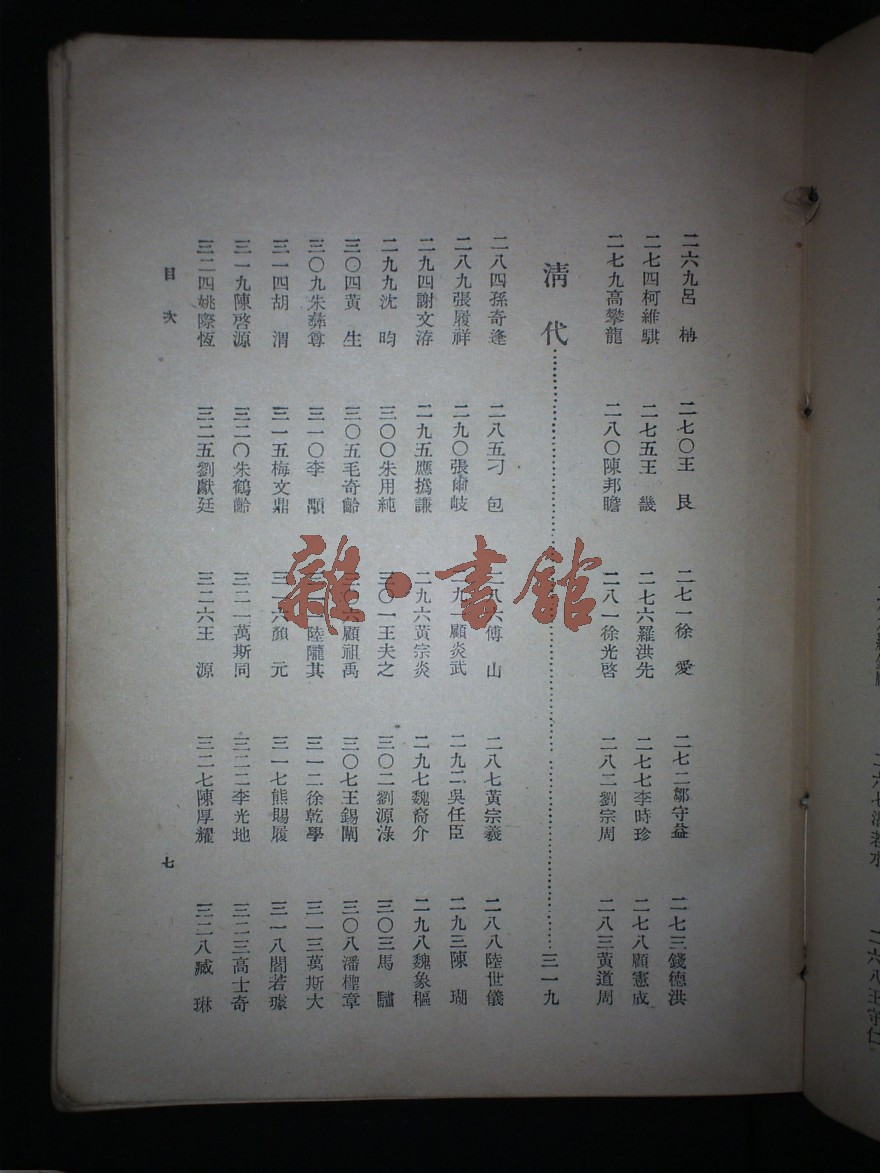 二六九呂　柟　二七〇王　艮　二七一徐　愛　二七二鄒守益　二七三錢德洪
二七四柯維騏　二七五王　畿　二七六羅洪先　二七七李時珍　二七八顧憲成
二七九高攀龍　二八〇陳邦瞻　二八一徐光啓　二八二劉宗周　二八三黃道周
清代……三一九
二八四孫奇逢　二八五刁　包　二八六傅　山　二八七黃宗羲　二八八陸世儀
二八九張履祥　二九〇張爾岐　二九一顧炎武　二九二吳任臣　二九三陳　瑚
二九四謝文洊　二九五應撝謙　二九六黃宗炎　二九七魏裔介　二九八魏象樞
二九九沈　昀　三〇〇朱用純　三〇一王夫之　三〇二劉源淥　三〇三馬　驌
三〇四黃　生　三〇五毛奇齡　三〇六顧祖禹　三〇七王錫闡　三〇八潘檉章
三〇九朱彝尊　三一〇李　顒　三一一陸隴其　三一二徐乾學　三一三萬斯大
三一四胡　渭　三一五梅文鼎　三一六顏　元　三一七熊賜履　三一八閻若璩
三一九陳啓源　三二〇朱鶴齡　三二一萬斯同　三二二李光地　三二三高士奇
三二四姚際恆　三二五劉獻廷　三二六王　源　三二七陳厚耀　三二八臧　琳
目次　七
雜·書館
二六八王守仁